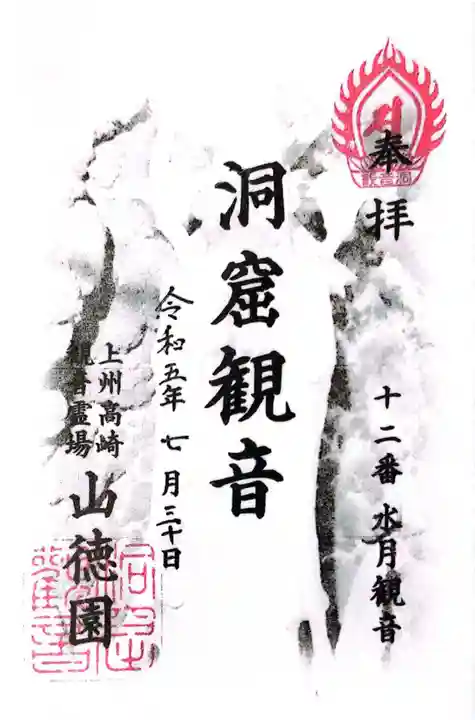 奉拝
十二番 水月観音
洞窟観音
令和五年 七月三十日
上州高崎
観音霊場
山徳園
洞窟観音